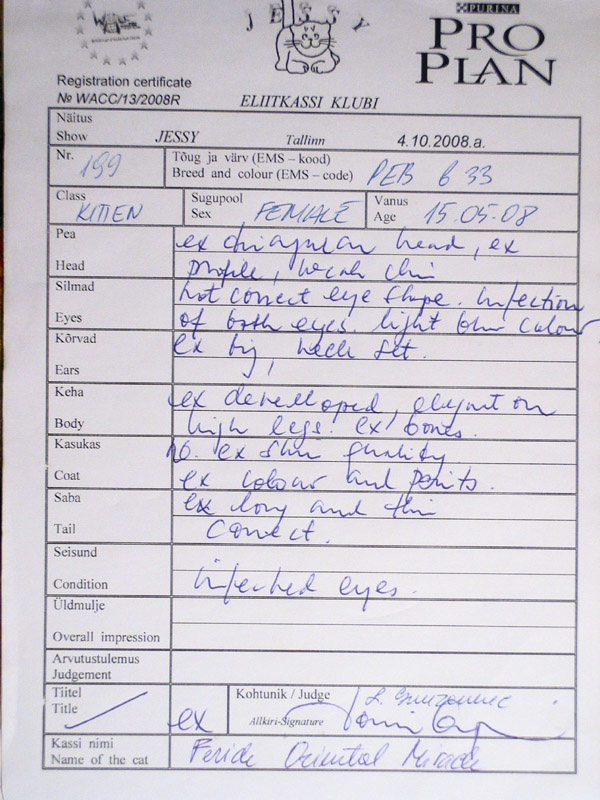 JESSY
PURINA
PRO
PLAN
Registration certificate
№ WACC/13/2008R
ELIITKASSI KLUBI
Näitus
Show JESSY Tallinn 4.10.2008.a.
Nr. 199
Tõug ja värv (EMS – kood)
Breed and colour (EMS – code) PEB b 33
Class KITTEN
Sugupool
Sex FEMALE
Vanus
Age 15.05.08
Pea ex triangular head, ex
Head profile, weak chin
Silmad not correct eye shape. Infection
Eyes of both eyes. light blue colour
Kõrvad ex big, well set.
Ears
Keha ex developed, elegant on
Body high legs. ex bones.
Kasukas no. ex skin quality
Coat ex colour and points.
Saba ex long and thin
Tail Correct.
Seisund
Condition infected eyes.
Üldmulje
Overall impression
Arvutustulemus
Judgement
Tiitel
Title ex
Kohtunik / Judge
Allkiri-Signature
Kassi nimi
Name of the cat Feride Oriental Miracle